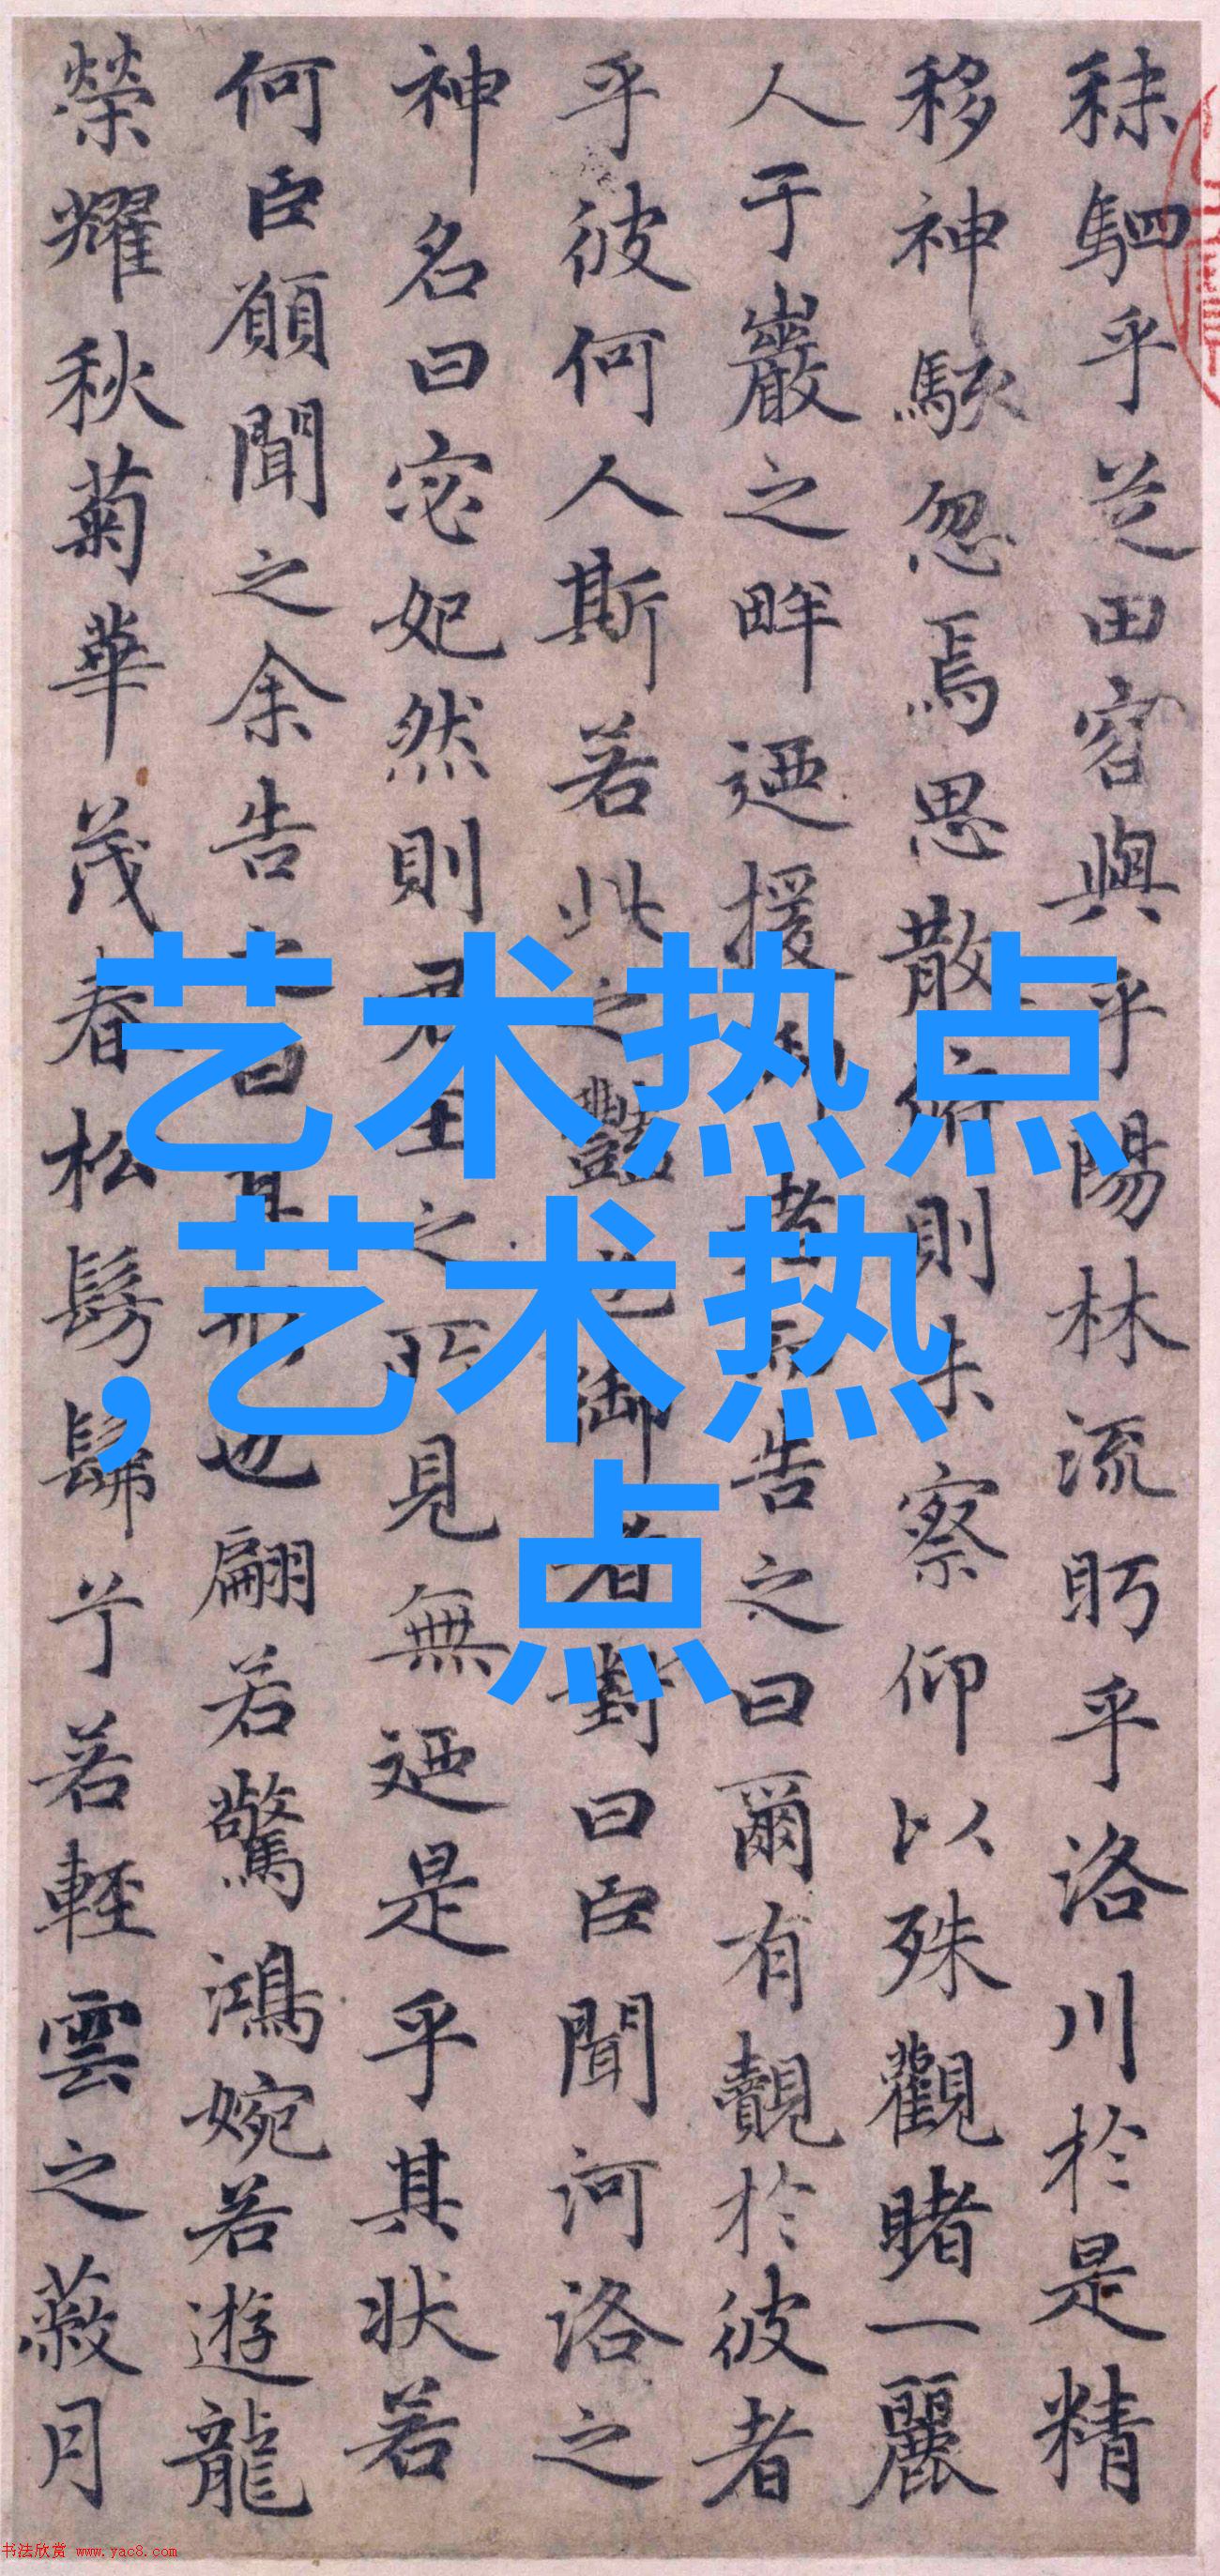 秣駟乎芝田容與乎陽林流眄乎洛川於是精
移神駭忽焉思散俯則未察仰以殊觀睹一麗
人于巖之畔迺援御者而告之曰爾有覿於彼者
乎彼何人斯若此之豔也御者對曰臣聞河洛之
神名曰宓妃然則君王之所見無迺是乎其状若
何臣願聞之余告之曰其形也翩若驚鴻婉若遊龍
榮耀秋菊華茂春松髣髴兮若輕雲之蔽月
艺术热点
,艺术热
点
书法欣赏 www.yac8.com